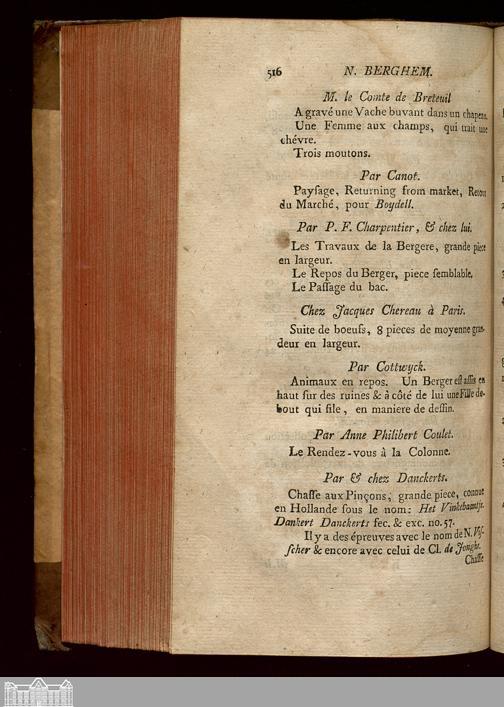 516 N. BERGHEM.
M. le Comte de Breteuil
A gravé une Vache buvant dans un chapeau.
Une Femme aux champs, qui trait une
chévre.
Trois moutons.
Par Canot.
Payſage, Returning from market, Retour
du Marché, pour Boydell.
Par P. F. Charpentier, & chez lui.
Les Travaux de la Bergere, grande piece
en largeur.
Le Repos du Berger, piece ſemblable.
Le Paſſage du bac.
Chez Jacques Chereau à Paris.
Suite de boeufs, 8 pieces de moyenne gran-
deur en largeur.
Par Cottwyck.
Animaux en repos. Un Berger eſt aſſis en
haut ſur des ruines & à côté de lui une Fille de-
bout qui file, en maniere de deſſin.
Par Anne Philibert Coulet.
Le Rendez-vous à la Colonne.
Par & chez Danckerts.
Chaſſe aux Pinçons, grande piece, connue
en Hollande ſous le nom: Het Vinkebaantje.
Dankert Danckerts fec. & exc. no. 57.
Il y a des épreuves avec le nom de N. Viſ-
ſcher & encore avec celui de Cl. de Jonghe.
Chaſſe